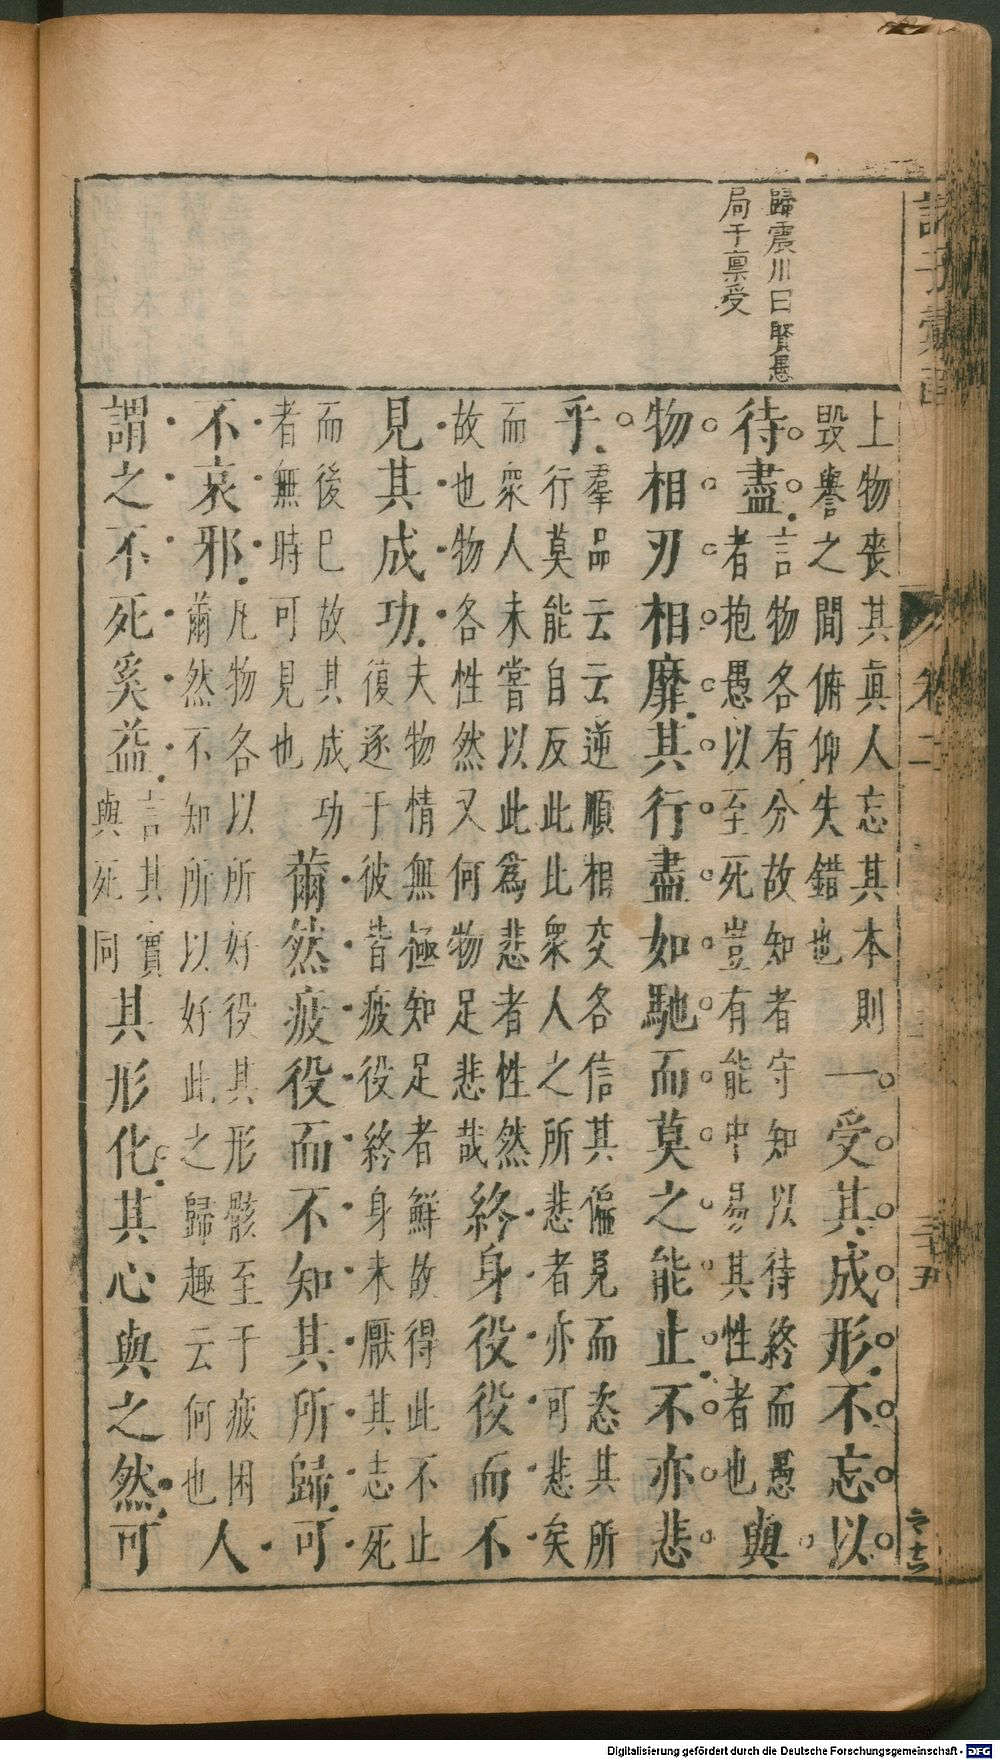 歸震川曰賢愚
局于稟受
上物喪其眞人忘其本則
毀譽之間俯仰失錯也
一受其成形不忘以
待盡
言物各有分故知者守知以待終而愚
者抱愚以至死豈有能中易其性者也
與
物相刃相靡其行盡如馳而莫之能止不亦悲
乎
羣品云云逆順相交各信其偏見而恣其所
行莫能自反此此衆人之所悲者亦可悲矣
而衆人未嘗以此爲悲者性然
故也物各性然又何物足悲哉
終身役役而不
見其成功
夫物情無極知足者鮮故得此不止
復逐于彼皆疲役終身未厭其志死
而後已故其成功
者無時可見也
薾然疲役而不知其所歸可
不哀邪
凡物各以所好役其形骸至于疲困
薾然不知所以好此之歸趣云何也
人
謂之不死奚益
言其實
與死同
其形化其心與之然可
Digitalisierung gefördert durch die Deutsche Forschungsgemeinschaft - DFG